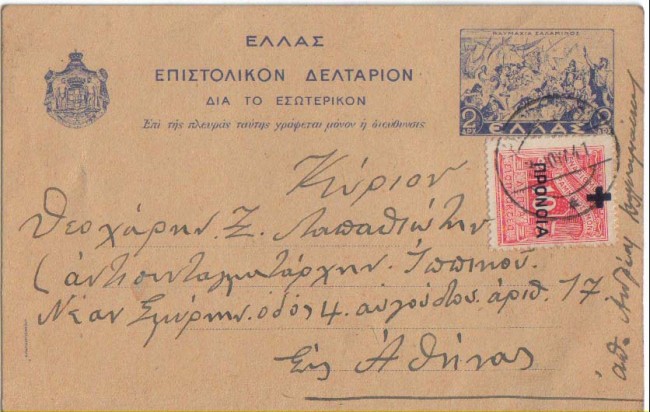 ΕΛΛΑΣ
ΕΠΙΣΤΟΛΙΚΟΝ ΔΕΛΤΑΡΙΟΝ
ΔΙΑ ΤΟ ΕΣΩΤΕΡΙΚΟΝ
Ἐπὶ τῆς πλευρᾶς ταύτης γράφεται μόνον ἡ διεύθυνσις
ΝΑΥΜΑΧΙΑ ΣΑΛΑΜΙΝΟΣ
2 ΕΛΛΑΣ 2
ΠΡΟΝΟΙΑ
Κύριον
Θεοχάρην Ζ. Παπαθιώτην
(ἀντισυνταγματάρχην Ἱππικοῦ.
Νέαν Σμύρνην. ὁδός 4. αὐγούστου. ἀριθ. 17
Εἰς Ἀθήνας